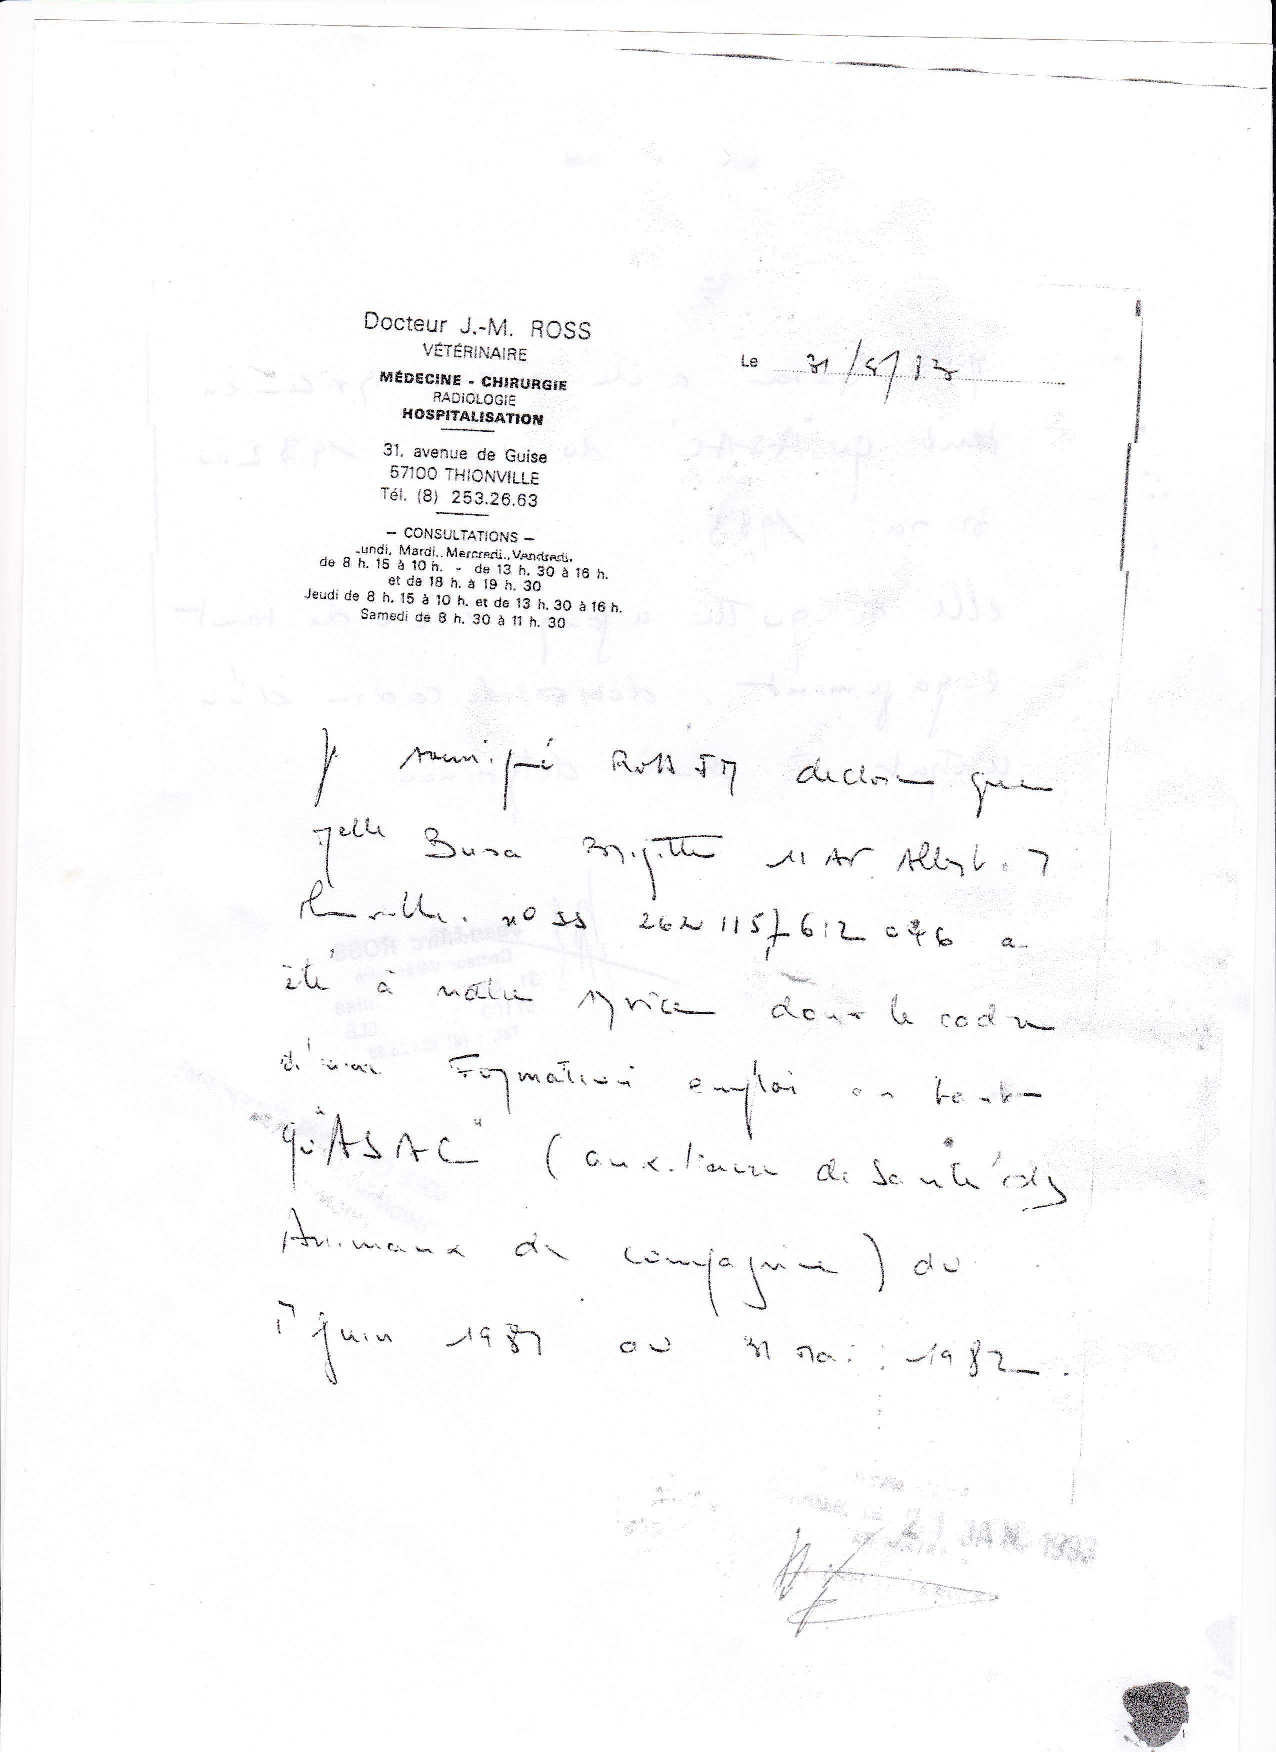 Docteur J.-M. ROSS
VÉTÉRINAIRE
MÉDECINE - CHIRURGIE
RADIOLOGIE
HOSPITALISATION
31, avenue de Guise
57100 THIONVILLE
Tél. (8) 253.26.63
— CONSULTATIONS —
Lundi, Mardi, Mercredi, Vendredi,
de 8 h. 15 à 10 h. - de 13 h. 30 à 16 h.
et de 18 h. à 19 h. 30
Jeudi de 8 h. 15 à 10 h. et de 13 h. 30 à 16 h.
Samedi de 8 h. 30 à 11 h. 30
Le 31/5/
Je soussigné ROSS JM declare que
Melle Busa Brigitte 11 Av Albert
n° SS 262 115 612 046 a
été à notre service dans le cadre
d'une Formation emploi en tant
qu'"ASAC" (auxiliaire de Santé des
Animaux de compagnie) du
1er juin 1981 au 31 mai 1982.
21 JAN 1983